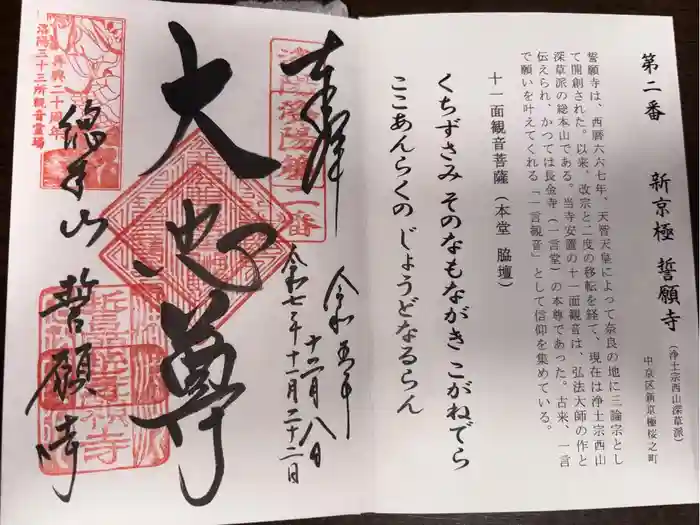 第二番　新京極　誓願寺（浄土宗西山深草派）
中京区新京極桜之町
誓願寺は、西暦六六七年、天智天皇によって奈良の地に三論宗とし
て開創された。以来、改宗と二度の移転を経て、現在は浄土宗西山
深草派の総本山である。当寺安置の十一面観音は、弘法大師の作と
伝えられ、かつては長金寺（一言堂）の本尊であった。古来、一言
で願いを叶えてくれる「一言観音」として信仰を集めている。
十一面観音菩薩（本堂　脇壇）
くちずさみ そのなもながき こがねでら
ここあんらくの じょうどなるらん
奉拝
洛陽第二番
令和五年
十二月八日
令和七年十一月二十二日
大悲尊
再興二十周年
洛陽三十三所観音霊場
山 誓願寺